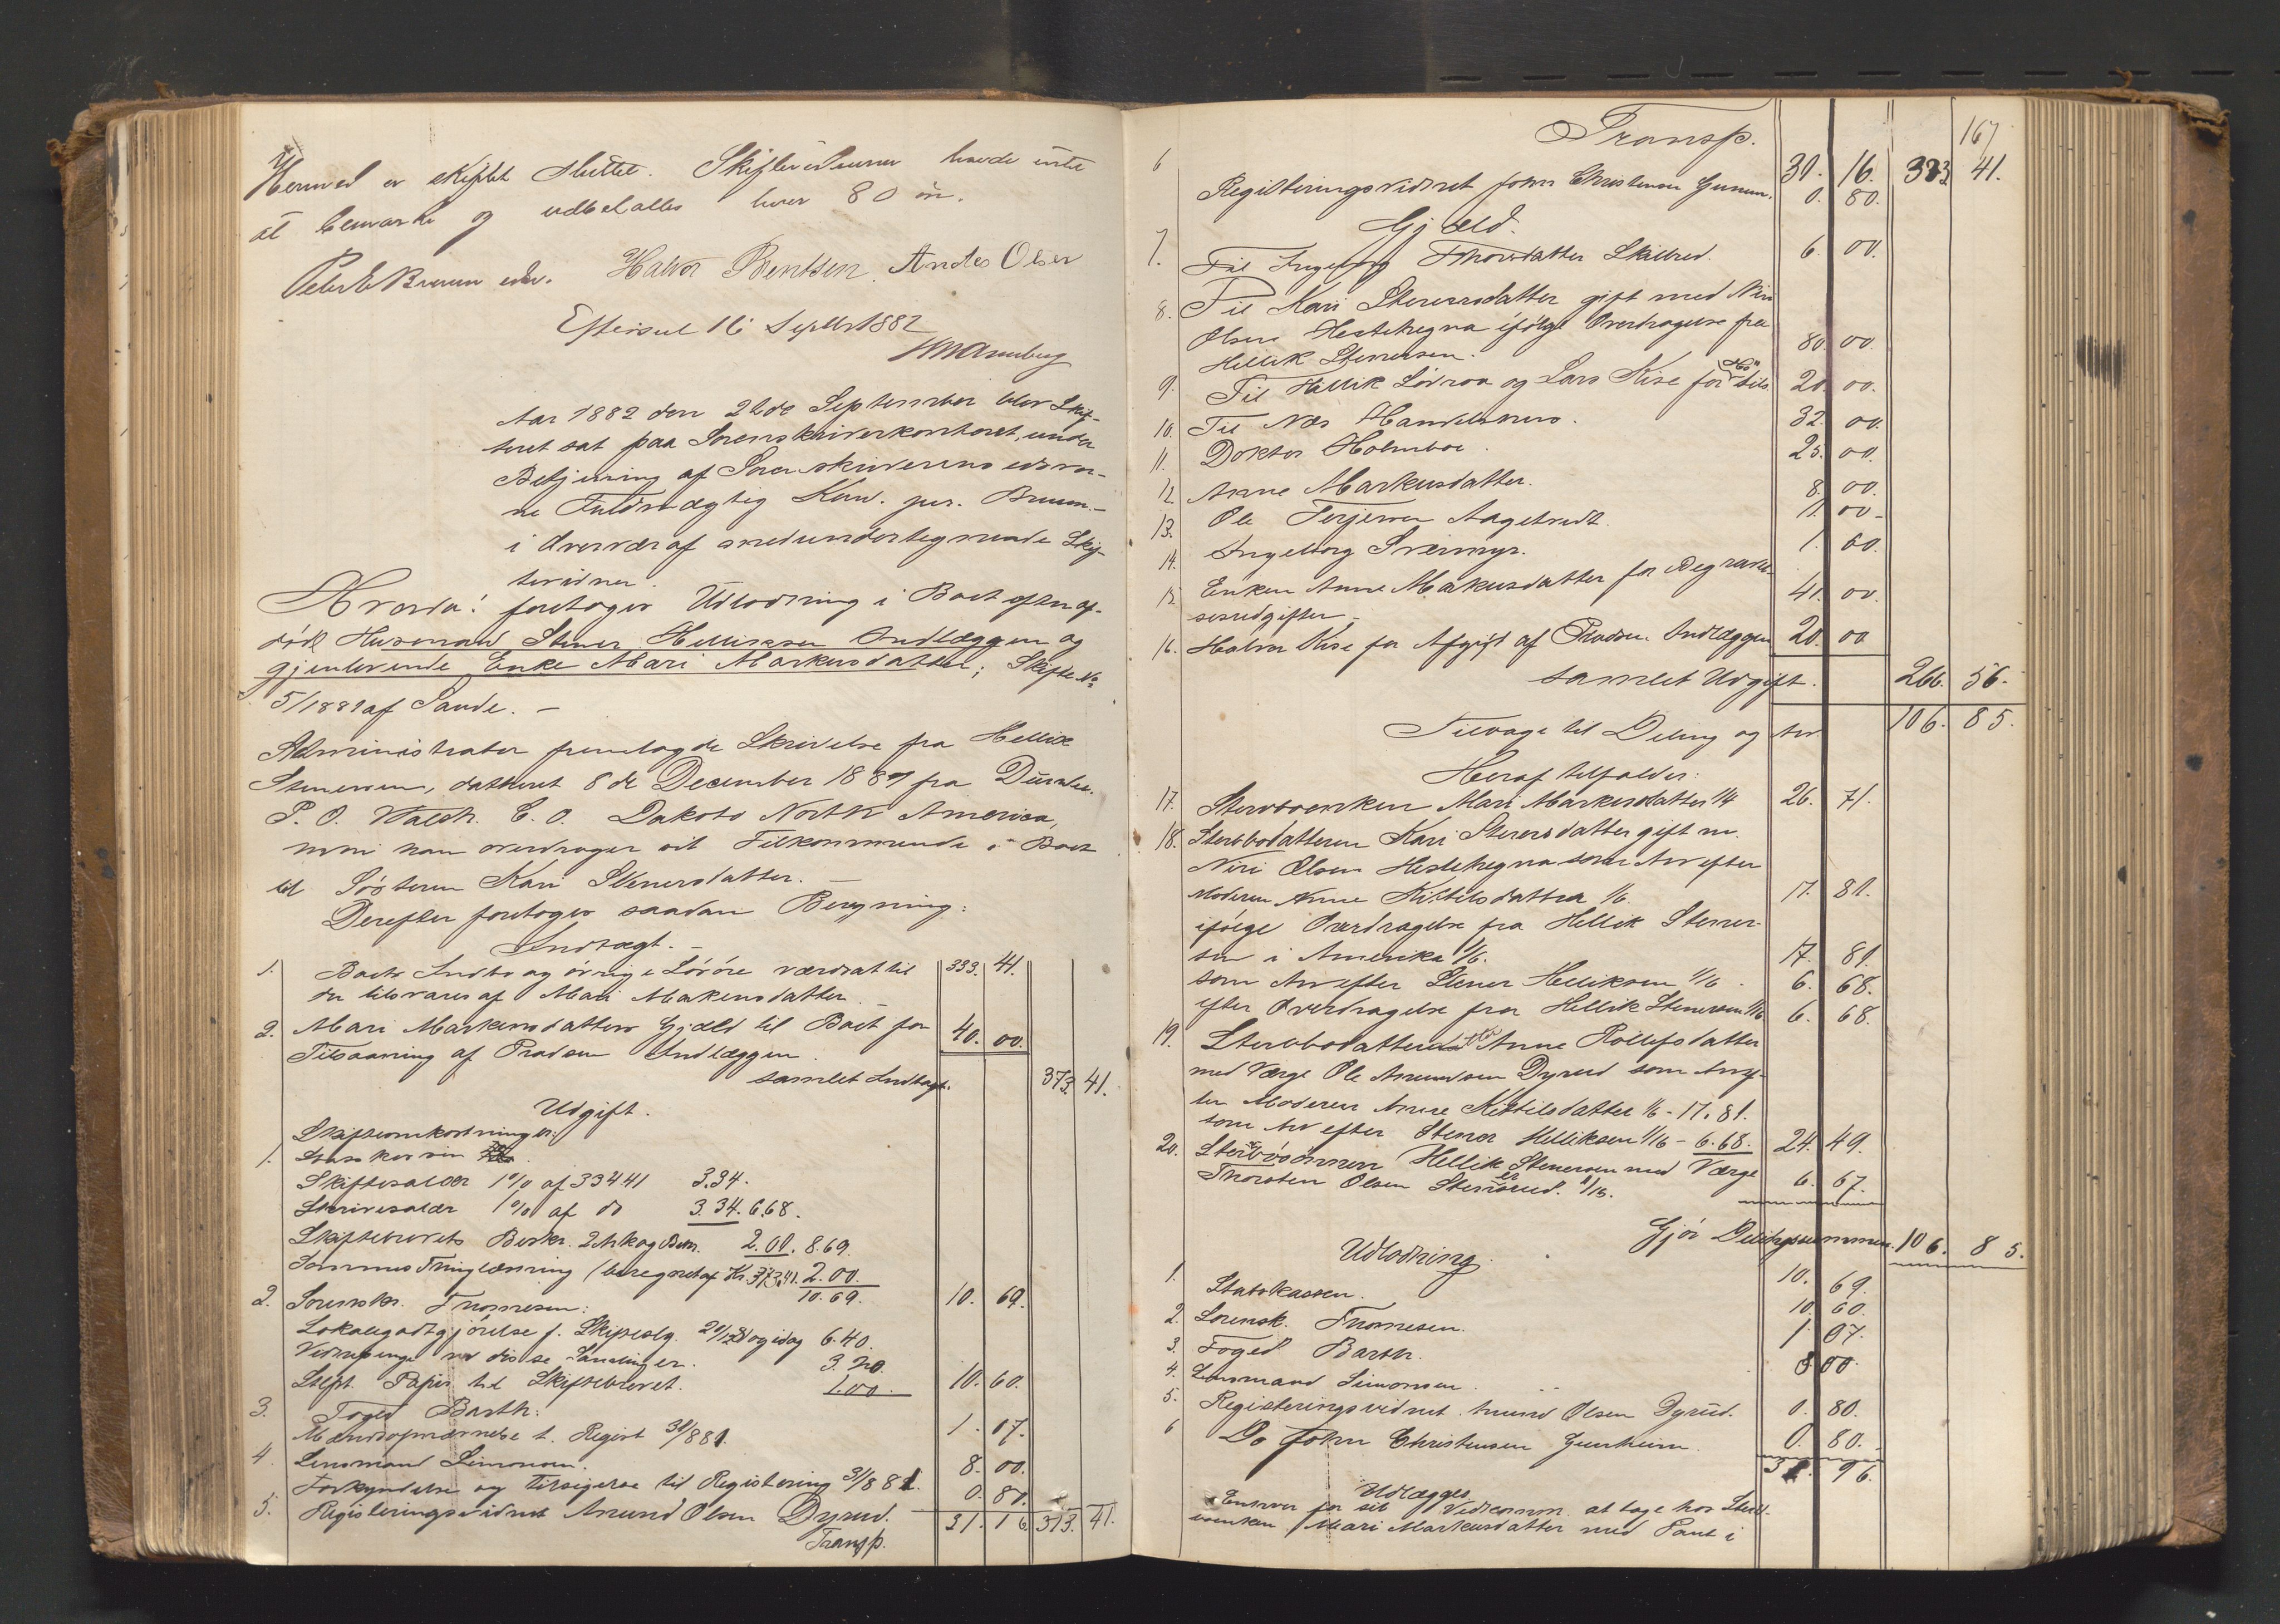 Hermed er skiftet sluttet. Skiftevidnerne havde intet
at bemærke og udbetaltes hver 80 øre.
Peter E Bruun edsv. Halvor Bentsen. Anders Olsen
Efterseet 16 Septbr 1882
Aar 1882 den 26de September blev Skif-
teret sat paa Sorenskriverkontoret, under
Betjening af Sorenskriverens edsvor-
ne Fuldmægtig Kand. jur. Bruun-
i Overvær af medundertegnende Skif-
tevidner.
Hvorda: foretoges Udlodning i Boet efter af-
døde Husmand Stener Helliksen Indlæggen og
gjenlevende Enke Mari Markusdatter; Skifte No
5/1881 af Sande. –
Administrator fremlagde Skrivelse fra Hellik
Stenersen, datteret 8de December 1881 fra
P. O. Walsh. C. O. Dakota North America,
hvori han overdrager sit Tilkommende i Boet
til Søsteren Kari Stenersdatter. –
Derefter foretoges saadan Beregning:
Indtægt. –
1. Boets Indbo og øvrige Løsøre værdsat til 333. 41.
der tilsvares af Mari Markusdatter. –
2. Mari Markusdatters Gjæld til Boet for
Tilsaaning af Pladsen Indlæggen. 40. 00.
samlet Indtægt. 373. 41.
Udgift.
Skifteomkostninger:
1. Statskassen
Skiftesalær 1% af 33441 3.34.
Skrivesalær 1% af do 3.34. 6.68.
Skiftebrevets Beskr. 2 Ark og Bekr. 2.01. 8.69.
Sammes Tinglæsning (beregnet af Kr. 373.41. 2.00.
10.69. 10. 69.
2. Sorenskr. Thomesen:
Lokalegodtgjørelse f. Skiftesalg. og idag 6.40.
Vidnepenge ved disse Samlinger. 3.20
Stpt. Papir til Skiftebrevet. 1.00. 10. 60.
3. Foged Barth:
Mændsopnævnelse t. Regist 31/8 81. 1. 07.
4. Lensmand Simonsen.
Forkyndelse og Tilsigelse til Registering 31/8 81. 8. 00.
5. Registeringsvidnet Amund Olsen Dyrud. 0. 80.
Transp. 31. 16. 373. 41.
167
Transp. 31. 16. 373 41.
6 Registeringsvidnet John Christensen Gunem. 0. 80.
Gjæld.
7. Til Ingeborg Thorsdatter Skillred. 6. 00.
8. Til Kari Stenersdatter gift med Niri
Olsen Hestehegna ifølge Overdragelse fra
Hellik Stenersen. 80. 00.
9. Til Hellik Løvaas og Lars Kise for Hø tils 20. 00.
10. Til Næs Handelshus. 32. 00.
11. Doktor Holmboe. 25. 00.
12. Anne Markusdatter. 8. 00.
13. Ole Terjesen Aagetvedt. 1. 00-
14. Ingeborg Sveimyr. 1. 60.
15. Enken Anne Makusdatter for Begravel-
sesudgifter – 41. 00.
16. Halvor Kise for Afgift af Pladsen Indlæggen 20. 00
samlet Udgift. 266. 56.
Tilbage til Deling og Arv 106. 85.
Heraf tilfalder:
17. Stervboenken Mari Markusdatter 1/4 26. 71.
18. Stervbodatteren Kari Stenersdatter gift m.
Niri Olsen Hestehegna som Arv efter
Moderen Anne Kittilsdatter 1/6. 17. 81.
ifølge Overdragelse fra Hellik Stener-
sen i Amerika 1/6. 17. 81.
som Arv efter Stener Helliksen 1/16. 6. 68.
efter Overdragelse fra Hellik Stenersen 1/16 6. 68.
19. Stervbodatteren Anne Rollefsdatter
med Værge Ole Amundsen Dyrud som Arv ef-
ter Moderen Anne Kittilsdatter 1/6 - 17.81.
som Arv efter Stener Helliksen 1/16 - 6.68. 24. 49.
20. Stervbosønnen Hellik Stenersen med Værge
Thorsten Olsen Stenerud. 1/16. 6. 67.
Gjør Delingssummen. 106. 85.
Udlodning.
1. Statskassen. 10. 69.
2. Sorensk. Thomesen. 10. 60.
3. Foged Barth. 1. 07.
4. Lensmand Simonsen. 8 00.
5. Registeringsvidnet Amund Olsen Dyrud. 0. 80.
6 Do John Christensen Gunheim. 0. 80.
31. 96.
Udlægges
Enhver for sit Vedkomm. at tage hos Sterv-
boenken Mari Markusdatter med Pant i